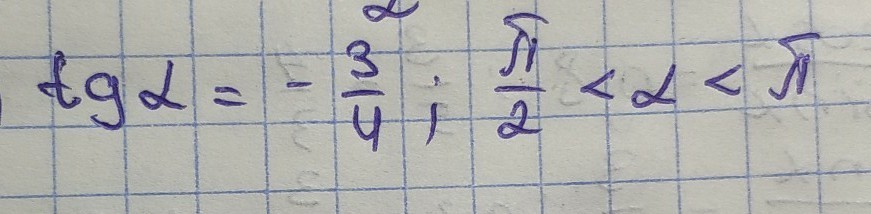 tg α = - 3/4 ; π/2 < α < π